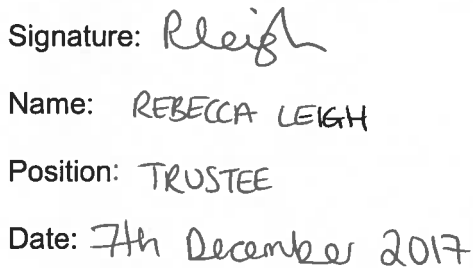 Signature: RLeigh
Name: REBECCA LEIGH
Position: TRUSTEE
Date: 7th December 2017